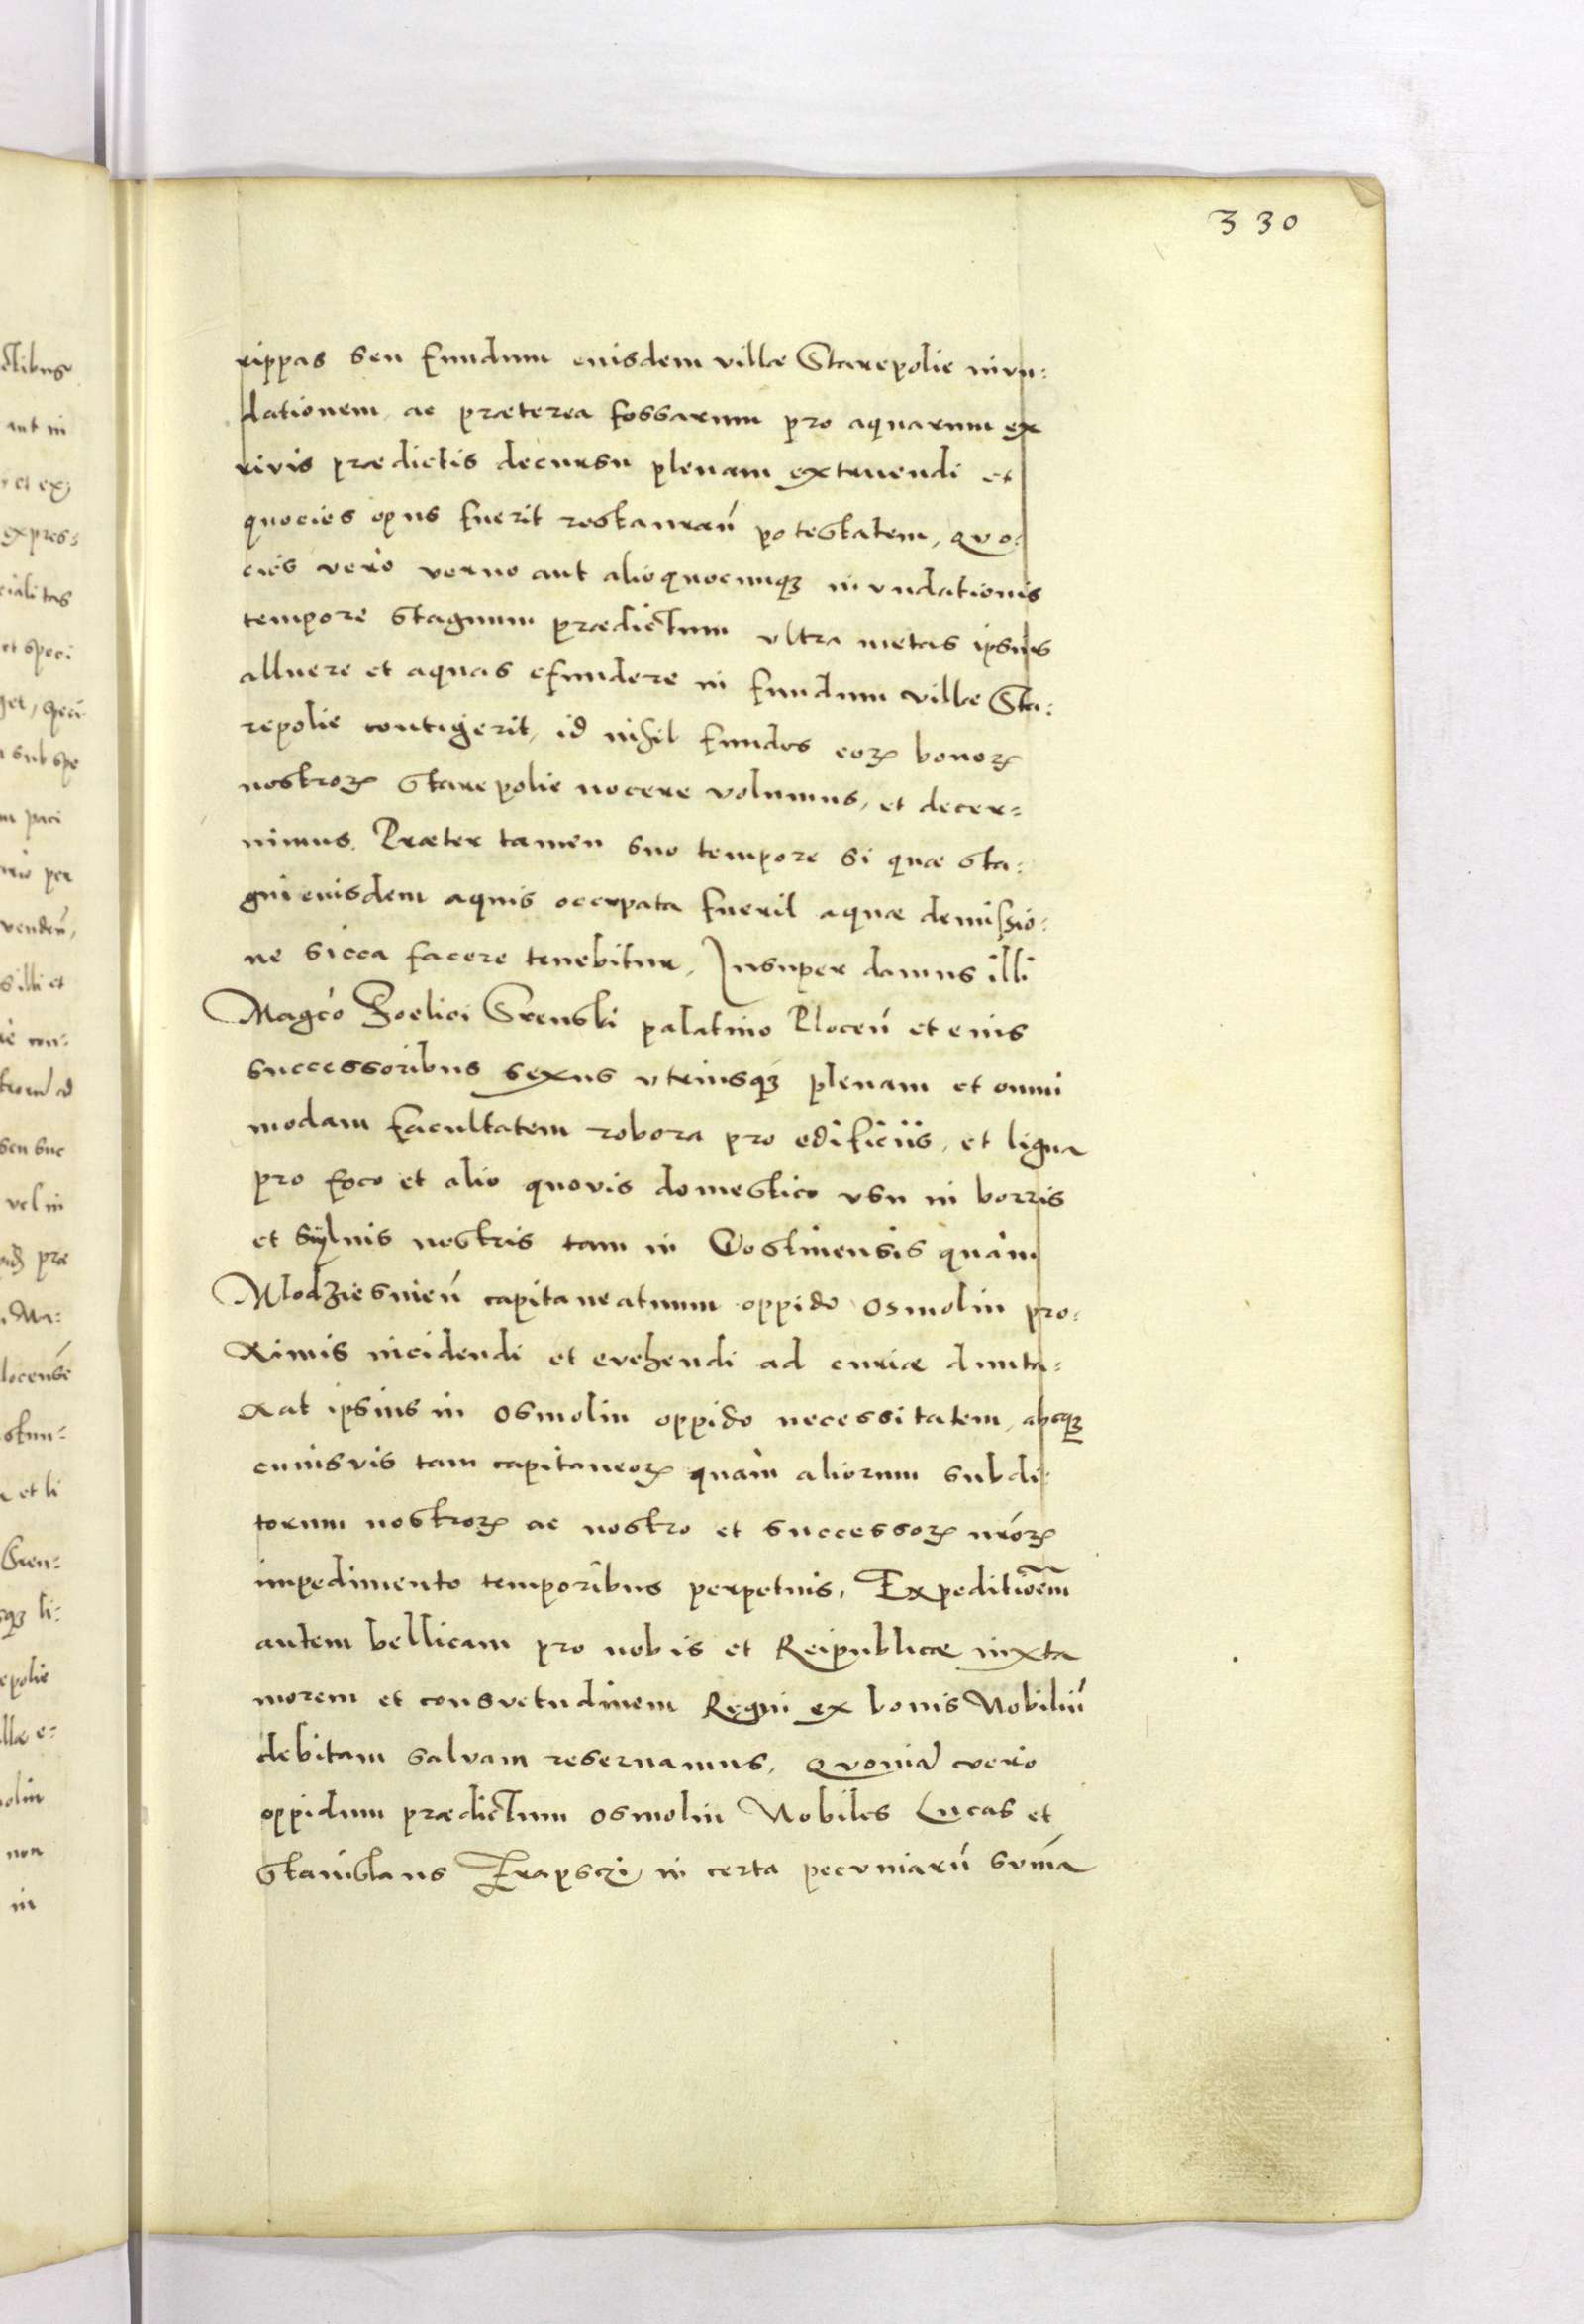 330
rippas seu fundum euisdem villæ Starepolie invn:
dationem, ac præterea fossarum pro aquarum ex
rivis prædictis decursu plenam extruendi et
quocies opus fuerit restauran̄ potestatem, Qvo:
cies vero verno aut alioquocunq3 invndationis
tempore stagnum prædictum vltra metas ipsius
alluere et aquas efundere in fundum villæ Sta:
repolie contigerit, id nihil fundos eoꝝ bonoꝝ
nostroꝝ Starepolie nocere volumus, et decer=
nimus. Præter tamen suo tempore si quæ sta:
gni euisdem aquis occvpata fueril aquæ demissio:
ne sicca facere tenebitur, Insuper damus illi
Magco Foelici Srenski palatino Plocen̄ et eius
successoribus sexus vtriusq3 plenam et omni
modam facultatem robora pro edificiis, et ligna
pro foco et alio quovis domestico vsu in borris
et sÿlvis nostris tam in Gostinensis quàm
Mlodziesnien̄ capitaneatuum oppido Osmolin pro:
ximis incidendi et evehendi ad curiæ dunta:
xat ipsius in Osmolin oppido necessitatem, absq3
cuiusvis tam capitaneoꝝ quàm aliorum subdi:
torum nostroꝝ ac nostro et successoꝝ nr̄oꝝ
impedimento temporibus perpetuis, Expeditiōem
autem bellicam pro nobis et Reipublicæ iuxta
morem et consvetudinem Regni ex bonis Nobiliū
debitam salvam reservamus, Qvoniā vero
oppidum prædictum Osmolin Nobiles Lucas et
Stanislaus in certa pecvniarū sūma
ctibus
aut in
et ex
expres:
cialitas
et speci
sub spe
m paci
per
venden̄,
s illi et
seu suc
vel in
præ
Ma:
locense
stun:
et li
Sren:
q3 li:
epolie
llæ e:
olin
non
in